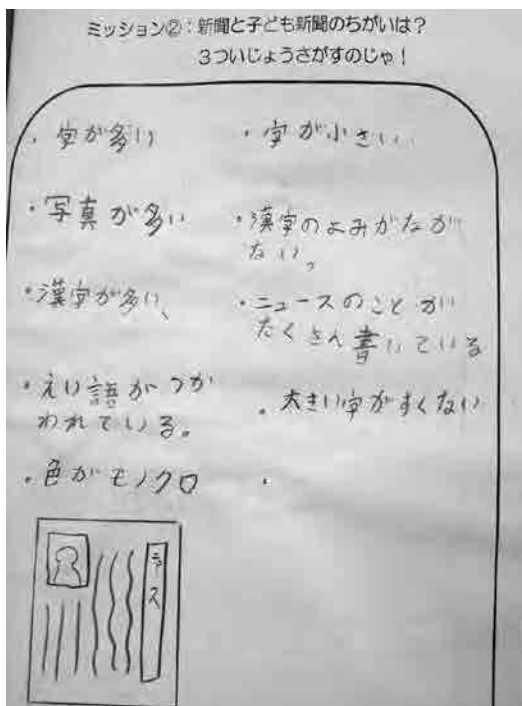 ミッション②：新聞と子ども新聞のちがいは？
３ついじょうさがすのじゃ！
・字が多い
・写真が多い
・漢字が多い、
・えい語がつか
われている。
・色がモノクロ
・字が小さい
・漢字のよみがなが
ない。
・ニュースのことが
たくさん書いている
・大きい字がすくない
・